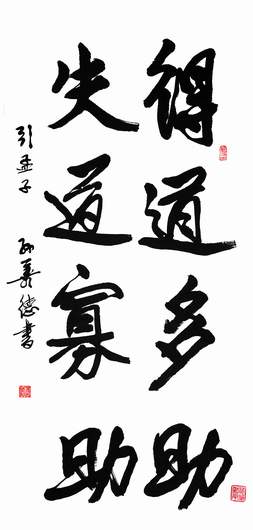 得道多助
失道寡助
引孟子
孙義德書